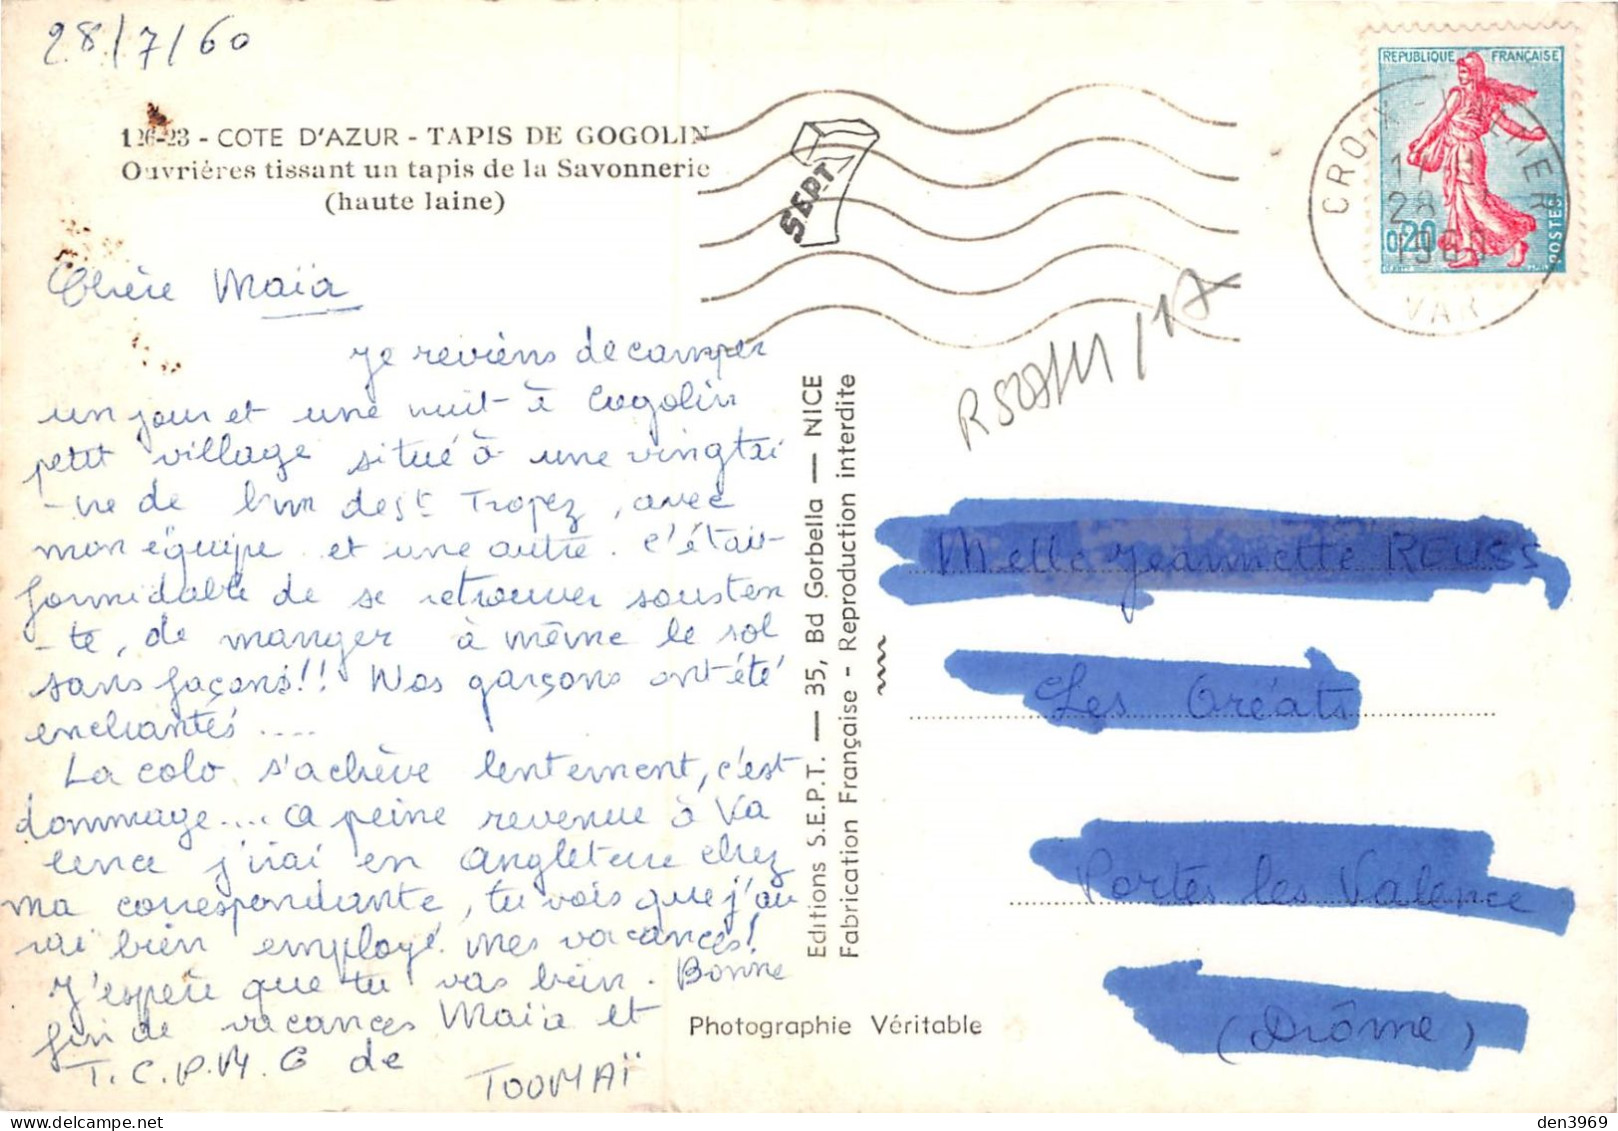 28/7/60
126-23 - COTE D'AZUR - TAPIS DE GOGOLIN
Ouvrières tissant un tapis de la Savonnerie
(haute laine)
SEPT
REPUBLIQUE FRANÇAISE
0,20
POSTES
28
1960
VAR
Chère Maïa
Je reviens de camper
un jour et une nuit à Cogolin
petit village situé à une vingtai
-ne de km de St Tropez, avec
mon équipe et une autre. C'était
formidable de se retrouver sous ten
-te, de manger à même le sol
sans façons!! Nos garçons ont été
enchantés ....
La colo s'achève lentement, c'est
dommage.... A peine revenue à Va
lence j'irai en Angleterre chez
ma correspondante, tu vois que j'au
rai bien employé mes vacances!
J'espère que tu vas bien. Bonne
fin de vacances Maïa et
T.C.P.M.G de
TOOMAÏ
Editions S.E.P.T. — 35, Bd Gorbella — NICE
Fabrication Française - Reproduction interdite
Photographie Véritable
Melle Jeannette REUSS
Les Gréats
Portes les Valence
(Drôme)
den3969